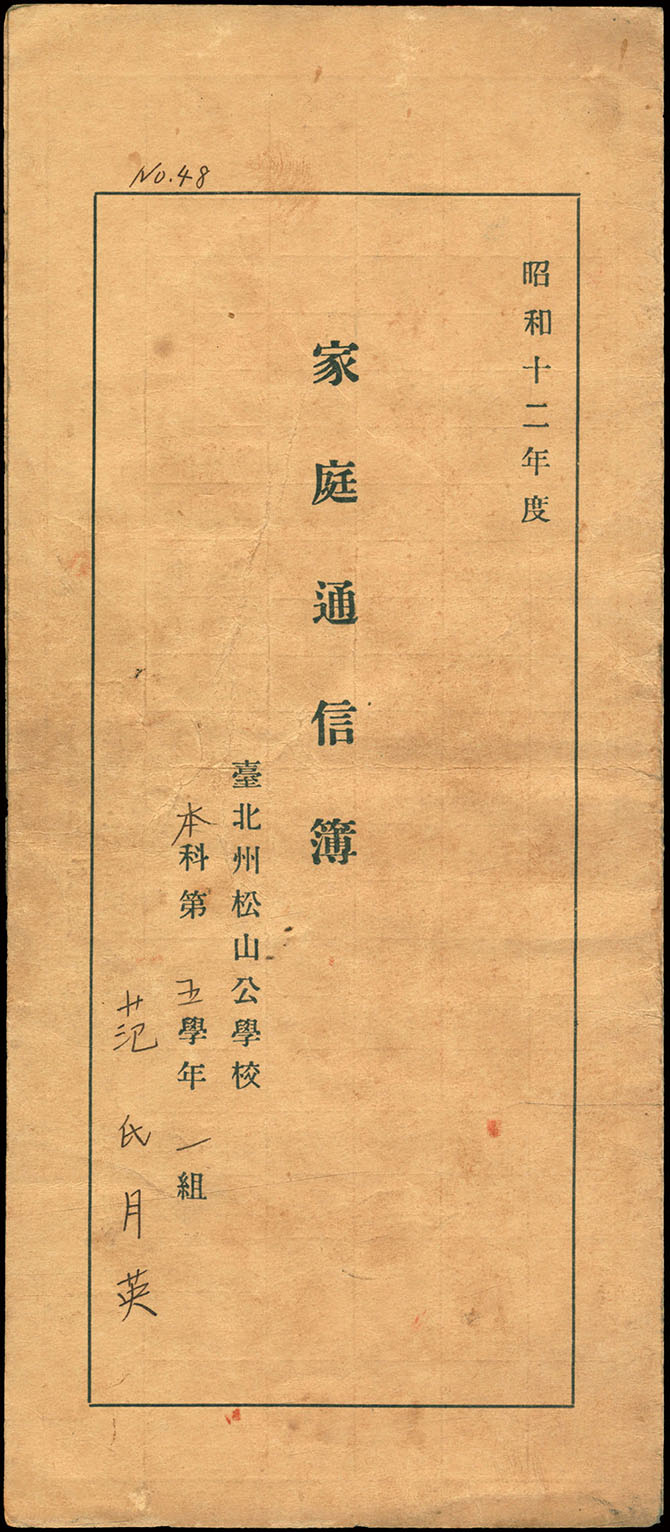 No.48
昭和十二年度
家庭通信簿
臺北州松山公學校
本科第五學年一組
范氏月英